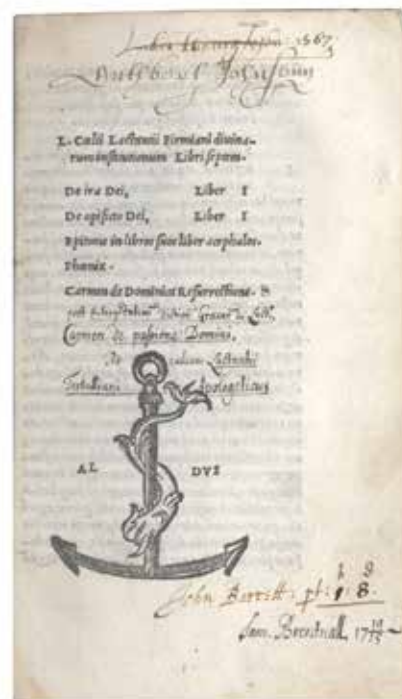 Liber 1567
Johnson
L. Cœlii Lactantii Firmiani divina-
rum institutionum Libri septem.
De ira Dei, Liber I
De opificio Dei, Liber I
Epitome in libros suos liber acephalos.
Phœnix.
Carmen de Dominica Resurrectione.
Carmen de passione Domini.
Lactantii
Tertulliani Apologeticus
AL DVS
John Barrett: pt: 1: 8.
Sam. Brentnall, 17